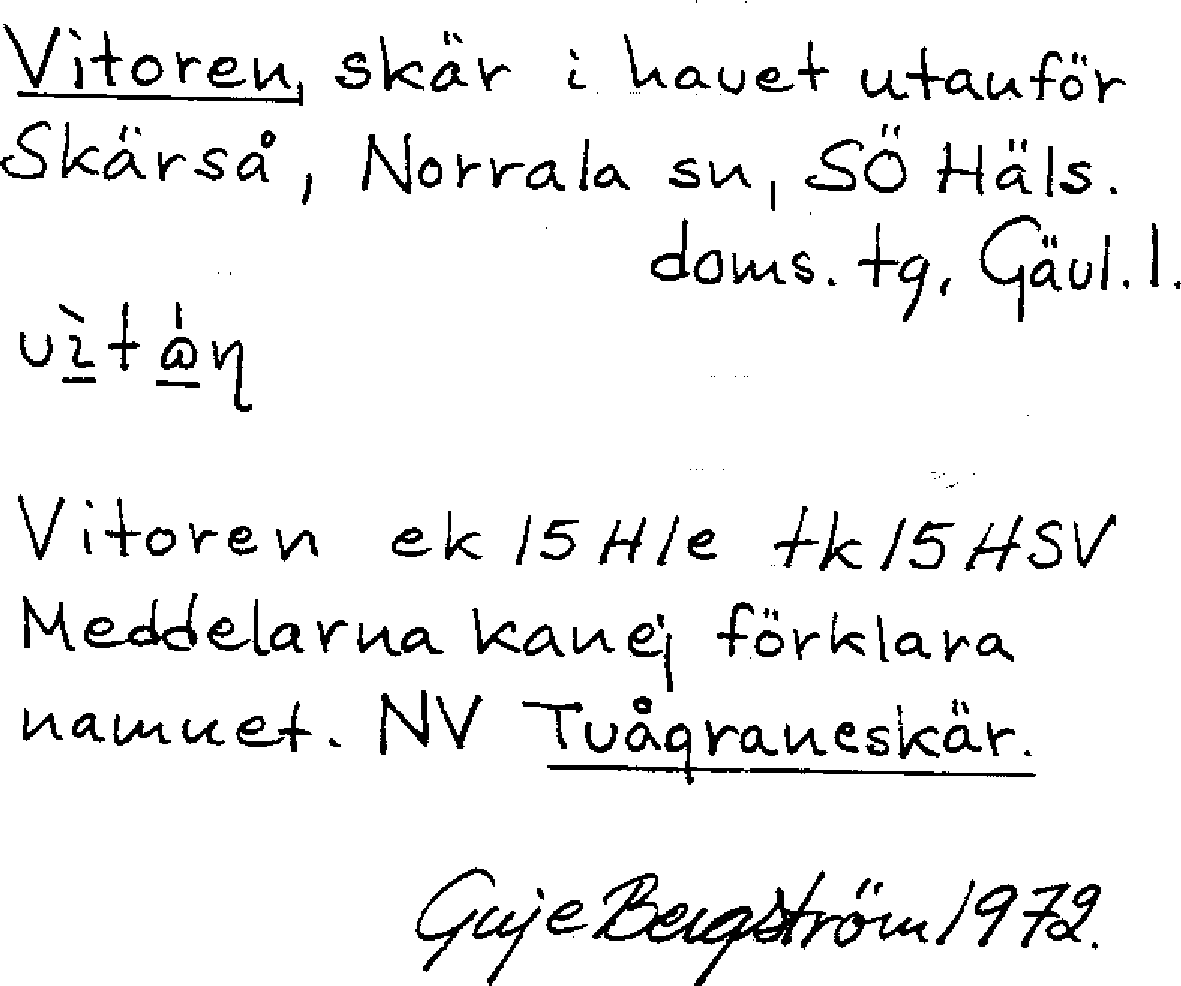 Vitoren, skär i havet utanför
Skärså, Norrala sn, SÖ Häls.
doms. tg, Gävl. l.
Vitoren ek 15 H 1e tk 15 H SV
Meddelarna kan ej förklara
namnet. NV Tvågraneskär.
Guje Bergström 1972.